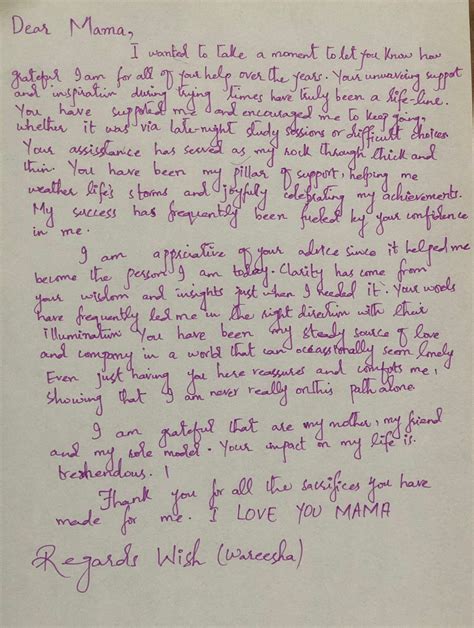 Dear Mama,
I wanted to take a moment to let you know how
grateful I am for all of your help over the years. Your unwavering support
and inspiration during trying times have truly been a life-line.
You have supported me and encouraged me to keep going,
whether it was via late-night study sessions or difficult choices
Your assistance has served as my rock through thick and
thin. You have been my pillar of support, helping me
weather life's storms and joyfully celebrating my achievements.
My success has frequently been fueled by your confidence
in me.
I am appreciative of your advice since it helped me
become the person I am today. Clarity has come from
your wisdom and insights just when I needed it. Your words
have frequently led me in the right direction with their
illumination. You have been my steady source of love
and company in a world that can occassionally seem lonely
Even just having you here reassures and comforts me,
showing that I am never really on this path alone.
I am grateful that are my mother, my friend
and my role model. Your impact on my life is
tremendous.
Thank you for all the sacrifices you have
made for me. I LOVE YOU MAMA
Regards Wish (Wareesha)